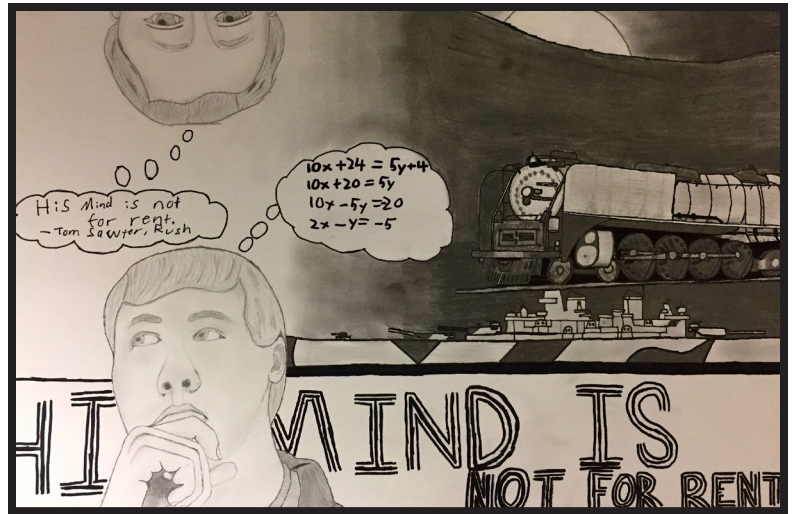 His Mind is not
for rent.
- Tom Sawyer, Rush
10x + 24 = 5y + 4
10x + 20 = 5y
10x - 5y = 20
2x - y = -5
HI MIND IS
NOT FOR RENT